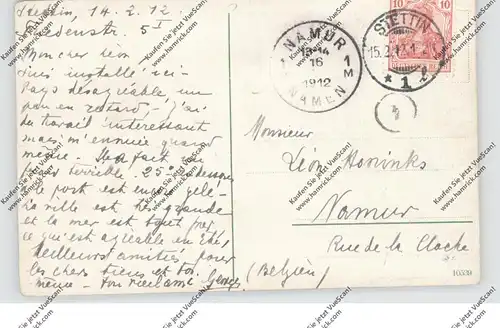 Stettin, 14.2.12.
5 I
Mon cher Léon
Suis installé ici-
Pays désagréable un
peu en retard, - j'ai
du travail intéressant
mais m'ennuie quand
même. Il a fait un
terrible. 25°
Le port est gelé-
La ville est très grande
et la mer est tout près
ce qui est agréable en Eté,
Meilleures amitiés pour
les chers tiens et toi-
même - ton Georges
NAMUR
13-14
16
1 M
1912
NAMEN
STETTIN
15.2.12.1
* 1 z
10 10
4
Monsieur
Léon Honinks
Namur
Rue de la Cloche
(Belgien)
10539
Kaufen Sie jetzt VueScan!
www.hamrick.com